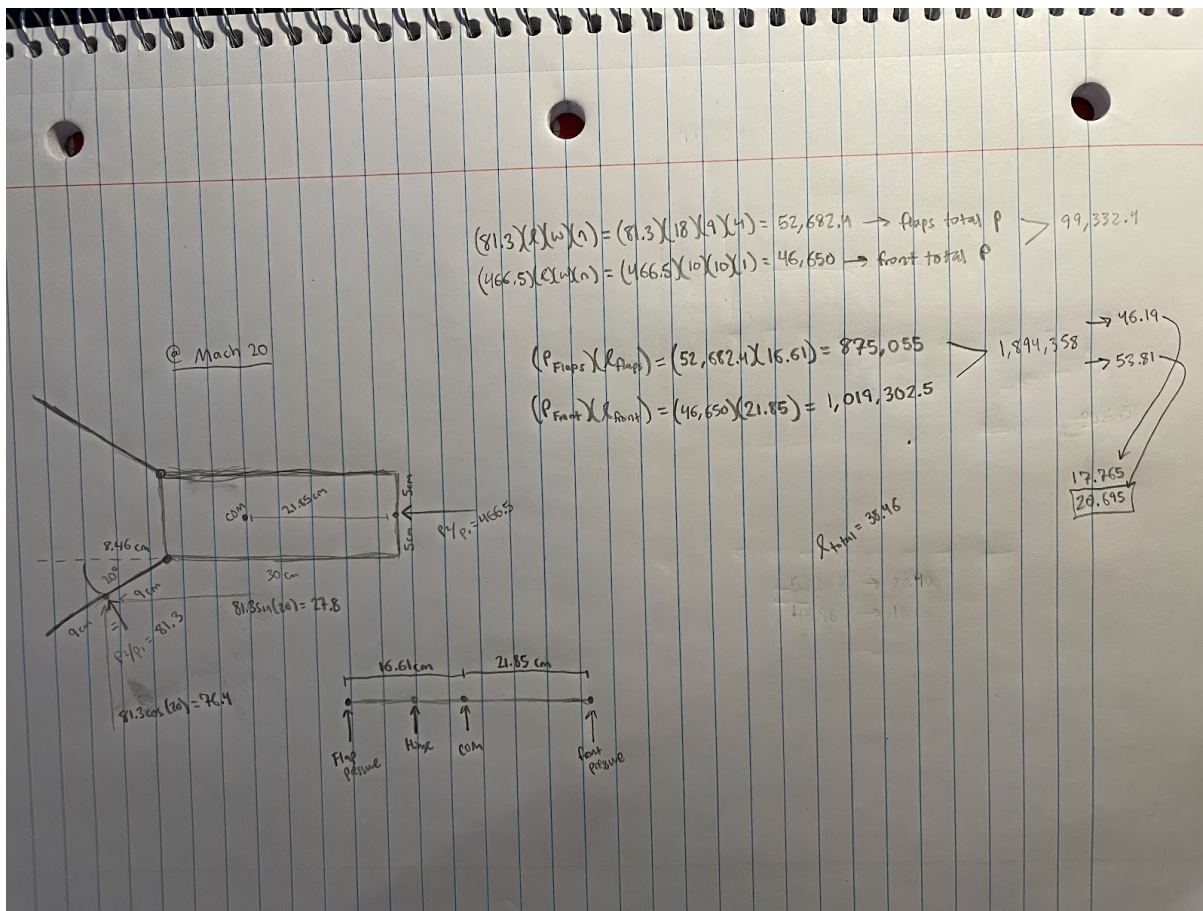 (81.3)(l)(w)(n) = (81.3)(18)(9)(4) = 52,682.4 → flaps total P > 99,332.4
(466.5)(l)(w)(n) = (466.5)(10)(10)(1) = 46,650 → front total P
@ Mach 20
(P_Flaps)(l_flaps) = (52,682.4)(16.61) = 875,055 > 1,894,358 → 46.19
(P_Front)(l_front) = (46,650)(21.85) = 1,019,302.5 → 53.81
17.765
20.695
l_total = 38.46
COM
21.85cm
5cm
5cm
P2/P1 = 466.5
8.46 cm
20°
9cm
9cm
30 cm
81.3sin(20) = 27.8
P2/P1 = 81.3
81.3cos(20) = 76.4
16.61cm
21.85 cm
Flap pressure
Hinge
COM
front pressure